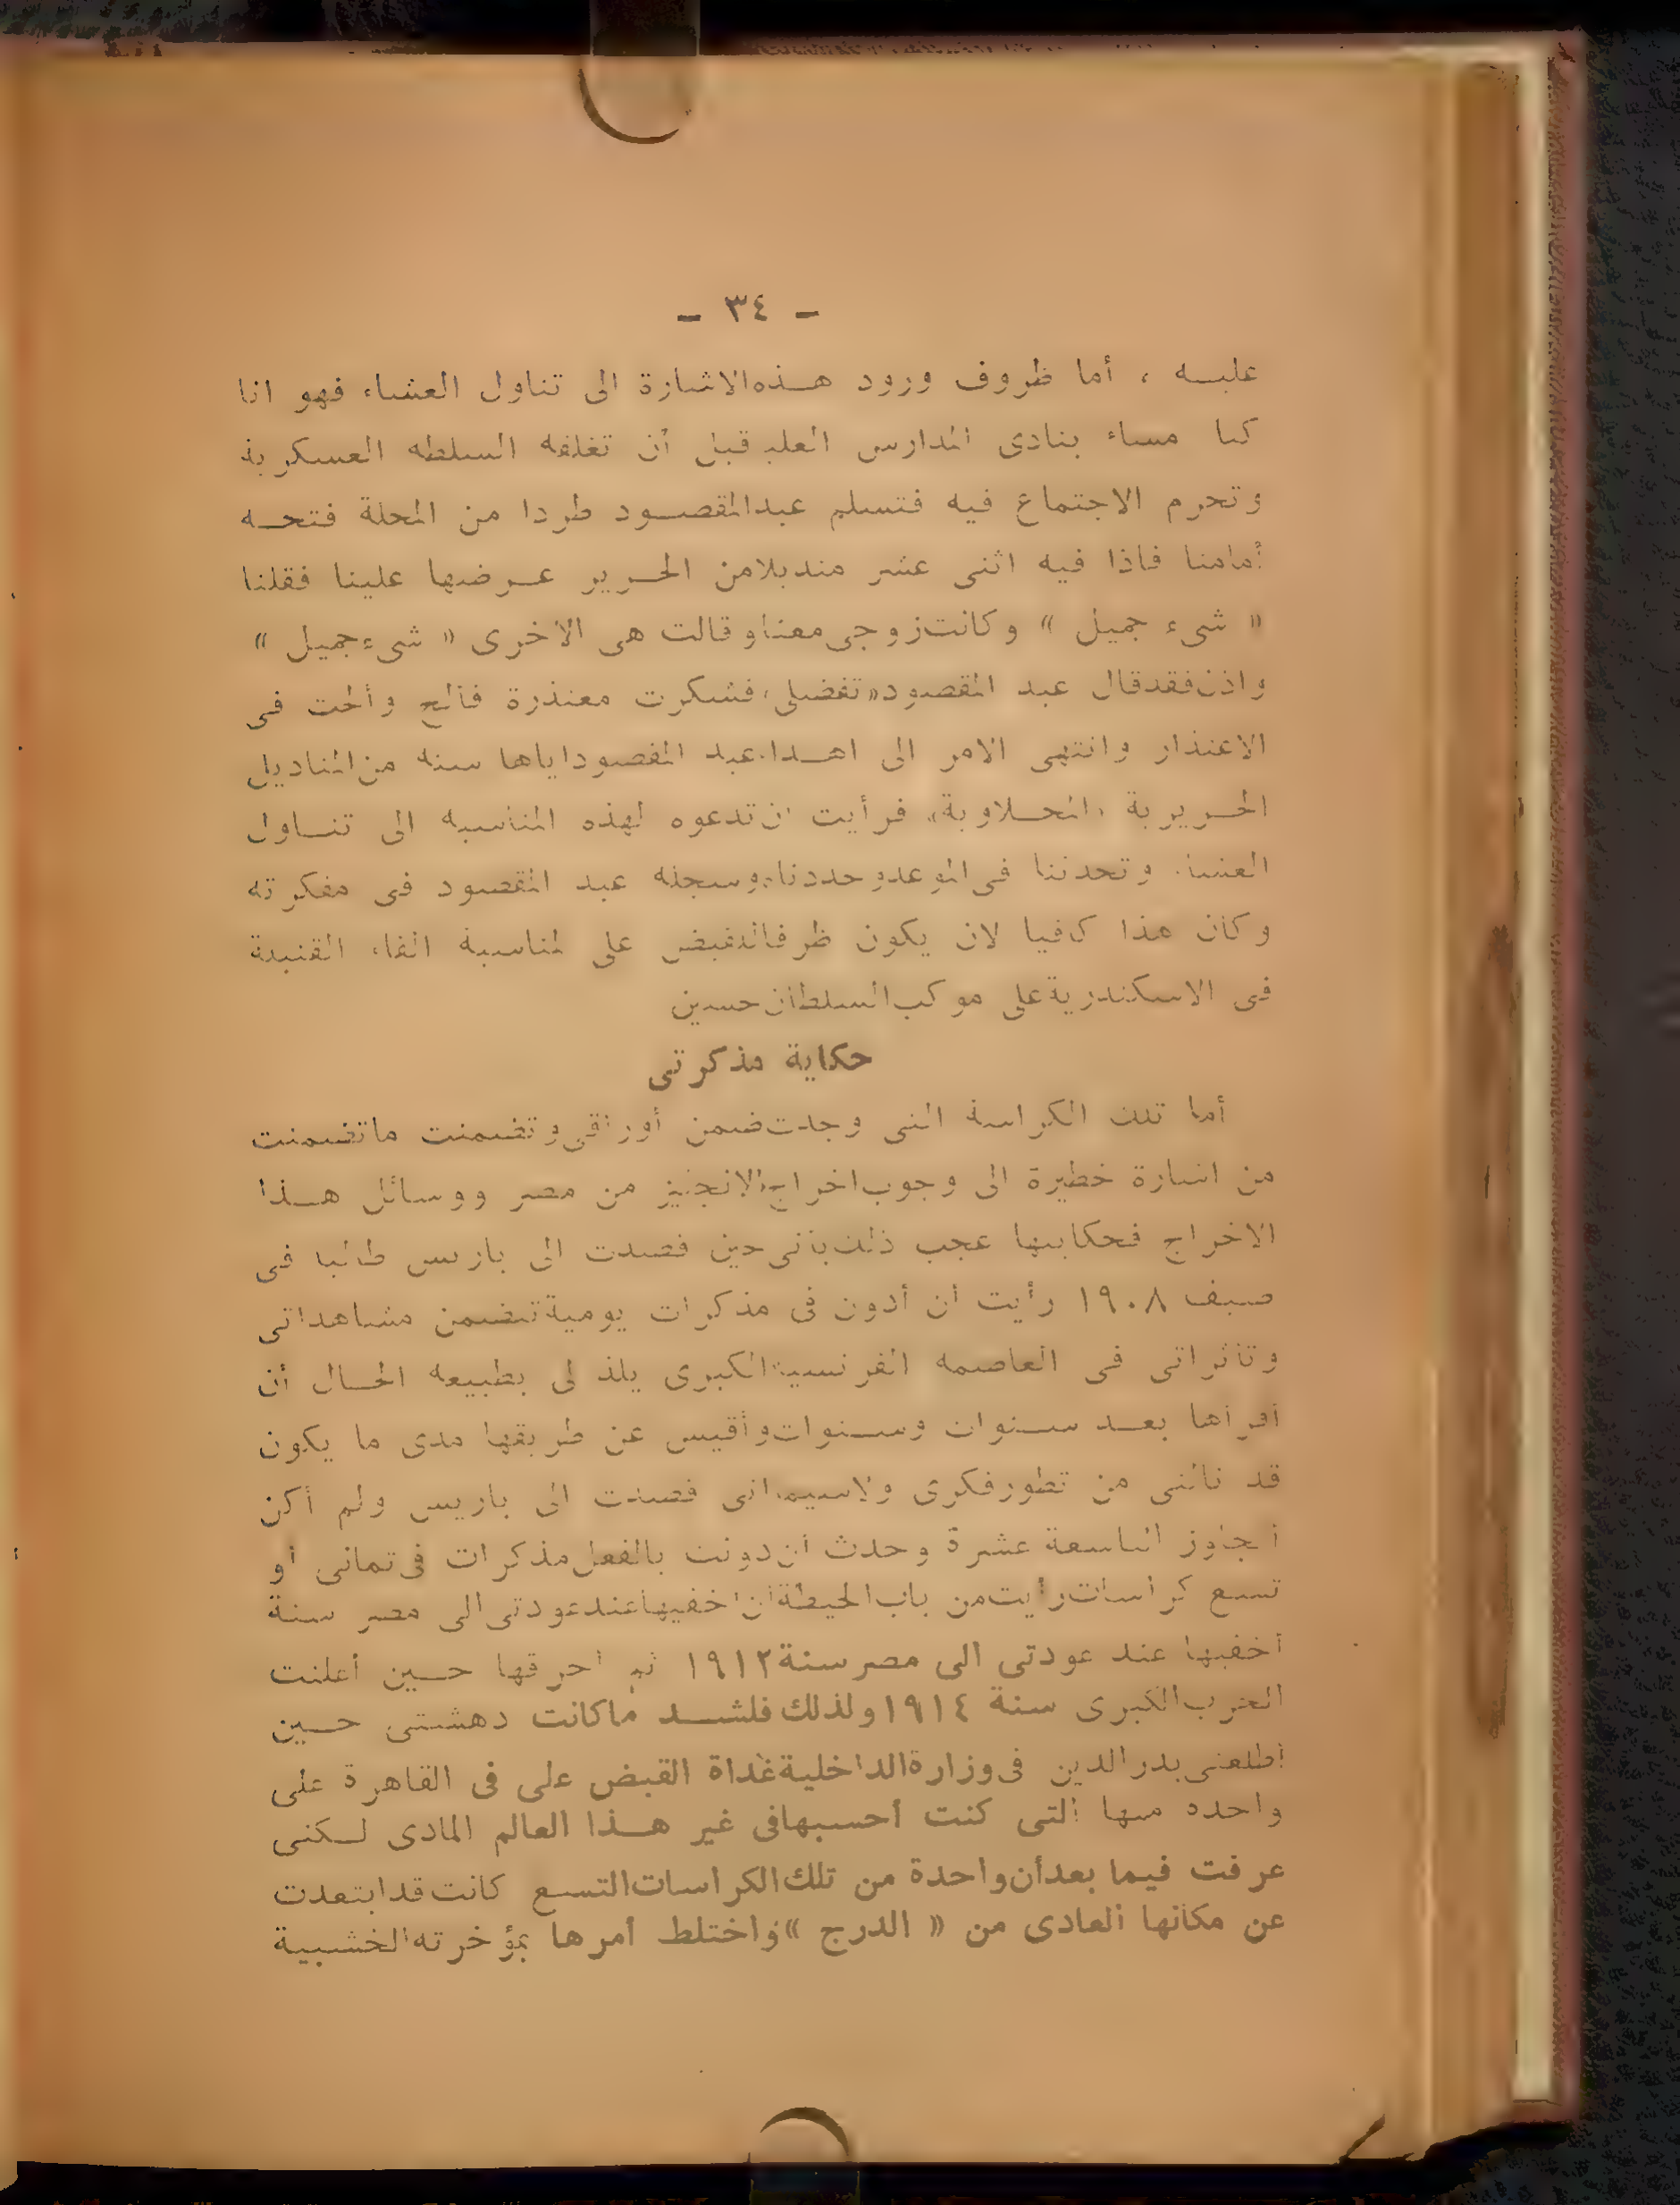 - ٣٤ -
عليه ، أما ظروف ورود هذه الاشارة الى تناول العشاء فهو انا
كنا مساء بنادى المدارس العليا قبل أن تغلقه السلطة العسكرية
وتحرم الاجتماع فيه فتسلم عبد المقصود طردا من المحلة فتحه
أمامنا فاذا فيه اثنى عشر منديلا من الحرير عرضها علينا فقلنا
« شىء جميل » وكانت زوجى معنا وقالت هى الاخرى « شىء جميل »
واذن فقد قال عبد المقصود « تفضلى » فشكرت معتذرة فألح وألحت فى
الاعتذار وانتهى الامر الى اهداء عبد المقصود اياها ستة من المناديل
الحريرية « المحلاوية » فرأيت ان تدعوه لهذه المناسبة الى تناول
العشاء وتحدثنا فى الموعد وحددناه وسجله عبد المقصود فى مفكرته
وكان هذا كافيا لان يكون ظرفا للقبض على لمناسبة القاء القنبلة
فى الاسكندرية على موكب السلطان حسين
حكاية مذكرتى
أما تلك الكراسة التى وجدت ضمن أوراقى وتضمنت ما تضمنت
من اشارة خطيرة الى وجوب اخراج الانجليز من مصر ووسائل هذا
الاخراج فحكايتها عجب ذلك بأنى حين قصدت الى باريس طالبا فى
صيف ١٩٠٨ رأيت أن أدون فى مذكرات يومية تتضمن مشاهداتى
وتأثراتى فى العاصمة الفرنسية الكبرى يلذ لى بطبيعة الحال أن
أقرأها بعد سنوات وسنوات وأقيس عن طريقها مدى ما يكون
قد نالنى من تطور فكرى ولاسيما انى قصدت الى باريس ولم أكن
أجاوز التاسعة عشرة وحدث أن دونت بالفعل مذكرات فى ثمانى أو
تسع كراسات رأيت من باب الحيطة أن اخفيها عند عودتى الى مصر سنة
أخفيها عند عودتى الى مصر سنة ١٩١٢ ثم احرقها حين أعلنت
الحرب الكبرى سنة ١٩١٤ ولذلك فلشد ما كانت دهشتى حين
أطلعنى بدر الدين فى وزارة الداخلية غداة القبض على فى القاهرة على
واحدة منها التى كنت أحسبها فى غير هذا العالم المادى لكنى
عرفت فيما بعد أن واحدة من تلك الكراسات التسع كانت قد ابتعدت
عن مكانها العادى من « الدرج » واختلط أمرها بمؤخرته الخشبية